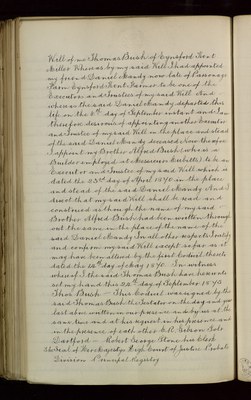 Will of me Thomas Bush of Eynsford Kent
Miller Whereas by my said Will I had appointed
my friend Daniel Mandy now late of Parsonage
Farm Eynsford Kent Farmer to be one of the
Executors and Trustees of my said Will And
whereas the said Daniel Mandy departed this
life on the 8th day of September instant and I am
therefore desirous of appointing another Executor
and Trustee of my said Will in the place and stead
of the said Daniel Mandy deceased Now therefore
I appoint my Brother Alfred Bush (who is a
Builder employed at Messieurs Cubitts) to be an
Executor and Trustee of my said Will which is
dated the 23rd day of April 1870 in the place
and stead of the said Daniel Mandy And I
direct that my said Will shall be read and
construed as though the name of my said
Brother Alfred Bush had been written through
out the same in the place of the name of the
said Daniel Mandy In all other respects I ratify
and confirm my said Will except so far as it
may have been altered by the first Codicil thereto
dated the 14th day of May 1871 In witness
whereof I the said Thomas Bush have hereunto
set my hand this 22nd day of September 1875
Thos Bush This Codicil was signed by the
said Thomas Bush the Testator on the day and year
last above written in our presence and by us at the
same time and at his request in his presence and
in the presence of each other C. R. Gibson Solr
Dartford Robert George Stone his Clerk
The Seal of Her Majestys High Court of Justice Probate
Division Principal Registry